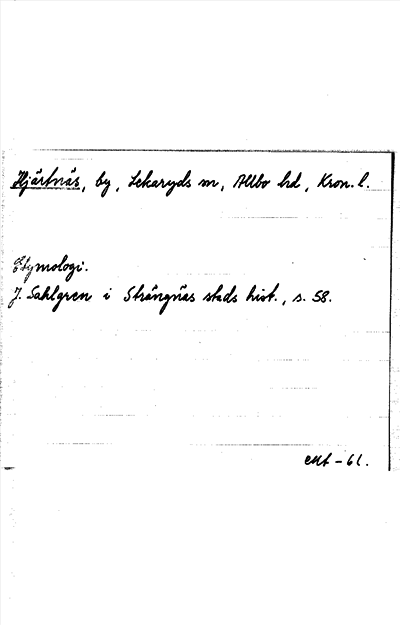 Hjärtnäs, by, Lekaryds sn, Allbo hd, Kron. l.
Etymologi.
J. Sahlgren i Strängnäs stads hist., s. 58.
-61.